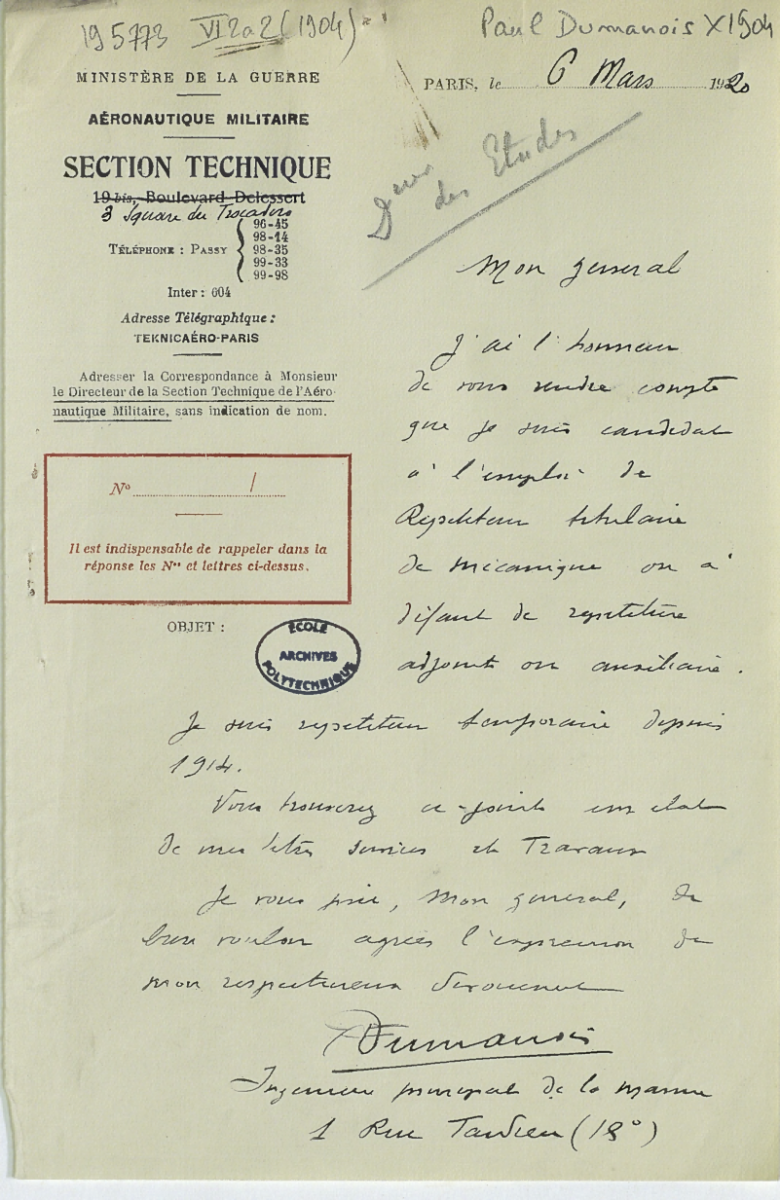 195773 VI2a2 (1904)
Paul Dumanois X1904
MINISTÈRE DE LA GUERRE
AÉRONAUTIQUE MILITAIRE
SECTION TECHNIQUE
19 bis, Boulevard Delessert
3 Square du Trocadéro
TÉLÉPHONE : PASSY
96-45
98-14
98-35
99-33
99-98
Inter : 604
Adresse Télégraphique :
TEKNICAÉRO-PARIS
Adresser la Correspondance à Monsieur
le Directeur de la Section Technique de l'Aéro-
nautique Militaire, sans indication de nom.
N° /
Il est indispensable de rappeler dans la
réponse les Nos et lettres ci-dessus.
OBJET :
ÉCOLE
ARCHIVES
POLYTECHNIQUE
PARIS, le 6 Mars 1920
des Etudes
Mon general
J'ai l'honneur
de vous rendre compte
que je suis candidat
à l'emploi de
Repetiteur titulaire
de mécanique ou à
défaut de repetiteur
adjoint ou auxiliaire.
Je suis repetiteur temporaire depuis
1914.
Vous trouverez ci-joint un etat
de mes titres services et Travaux
Je vous prie, Mon general, de
bien vouloir agréer l'expression de
mon respectueux devouement
Dumanois
Ingenieur principal de la marine
1 Rue Tardieu (18°)